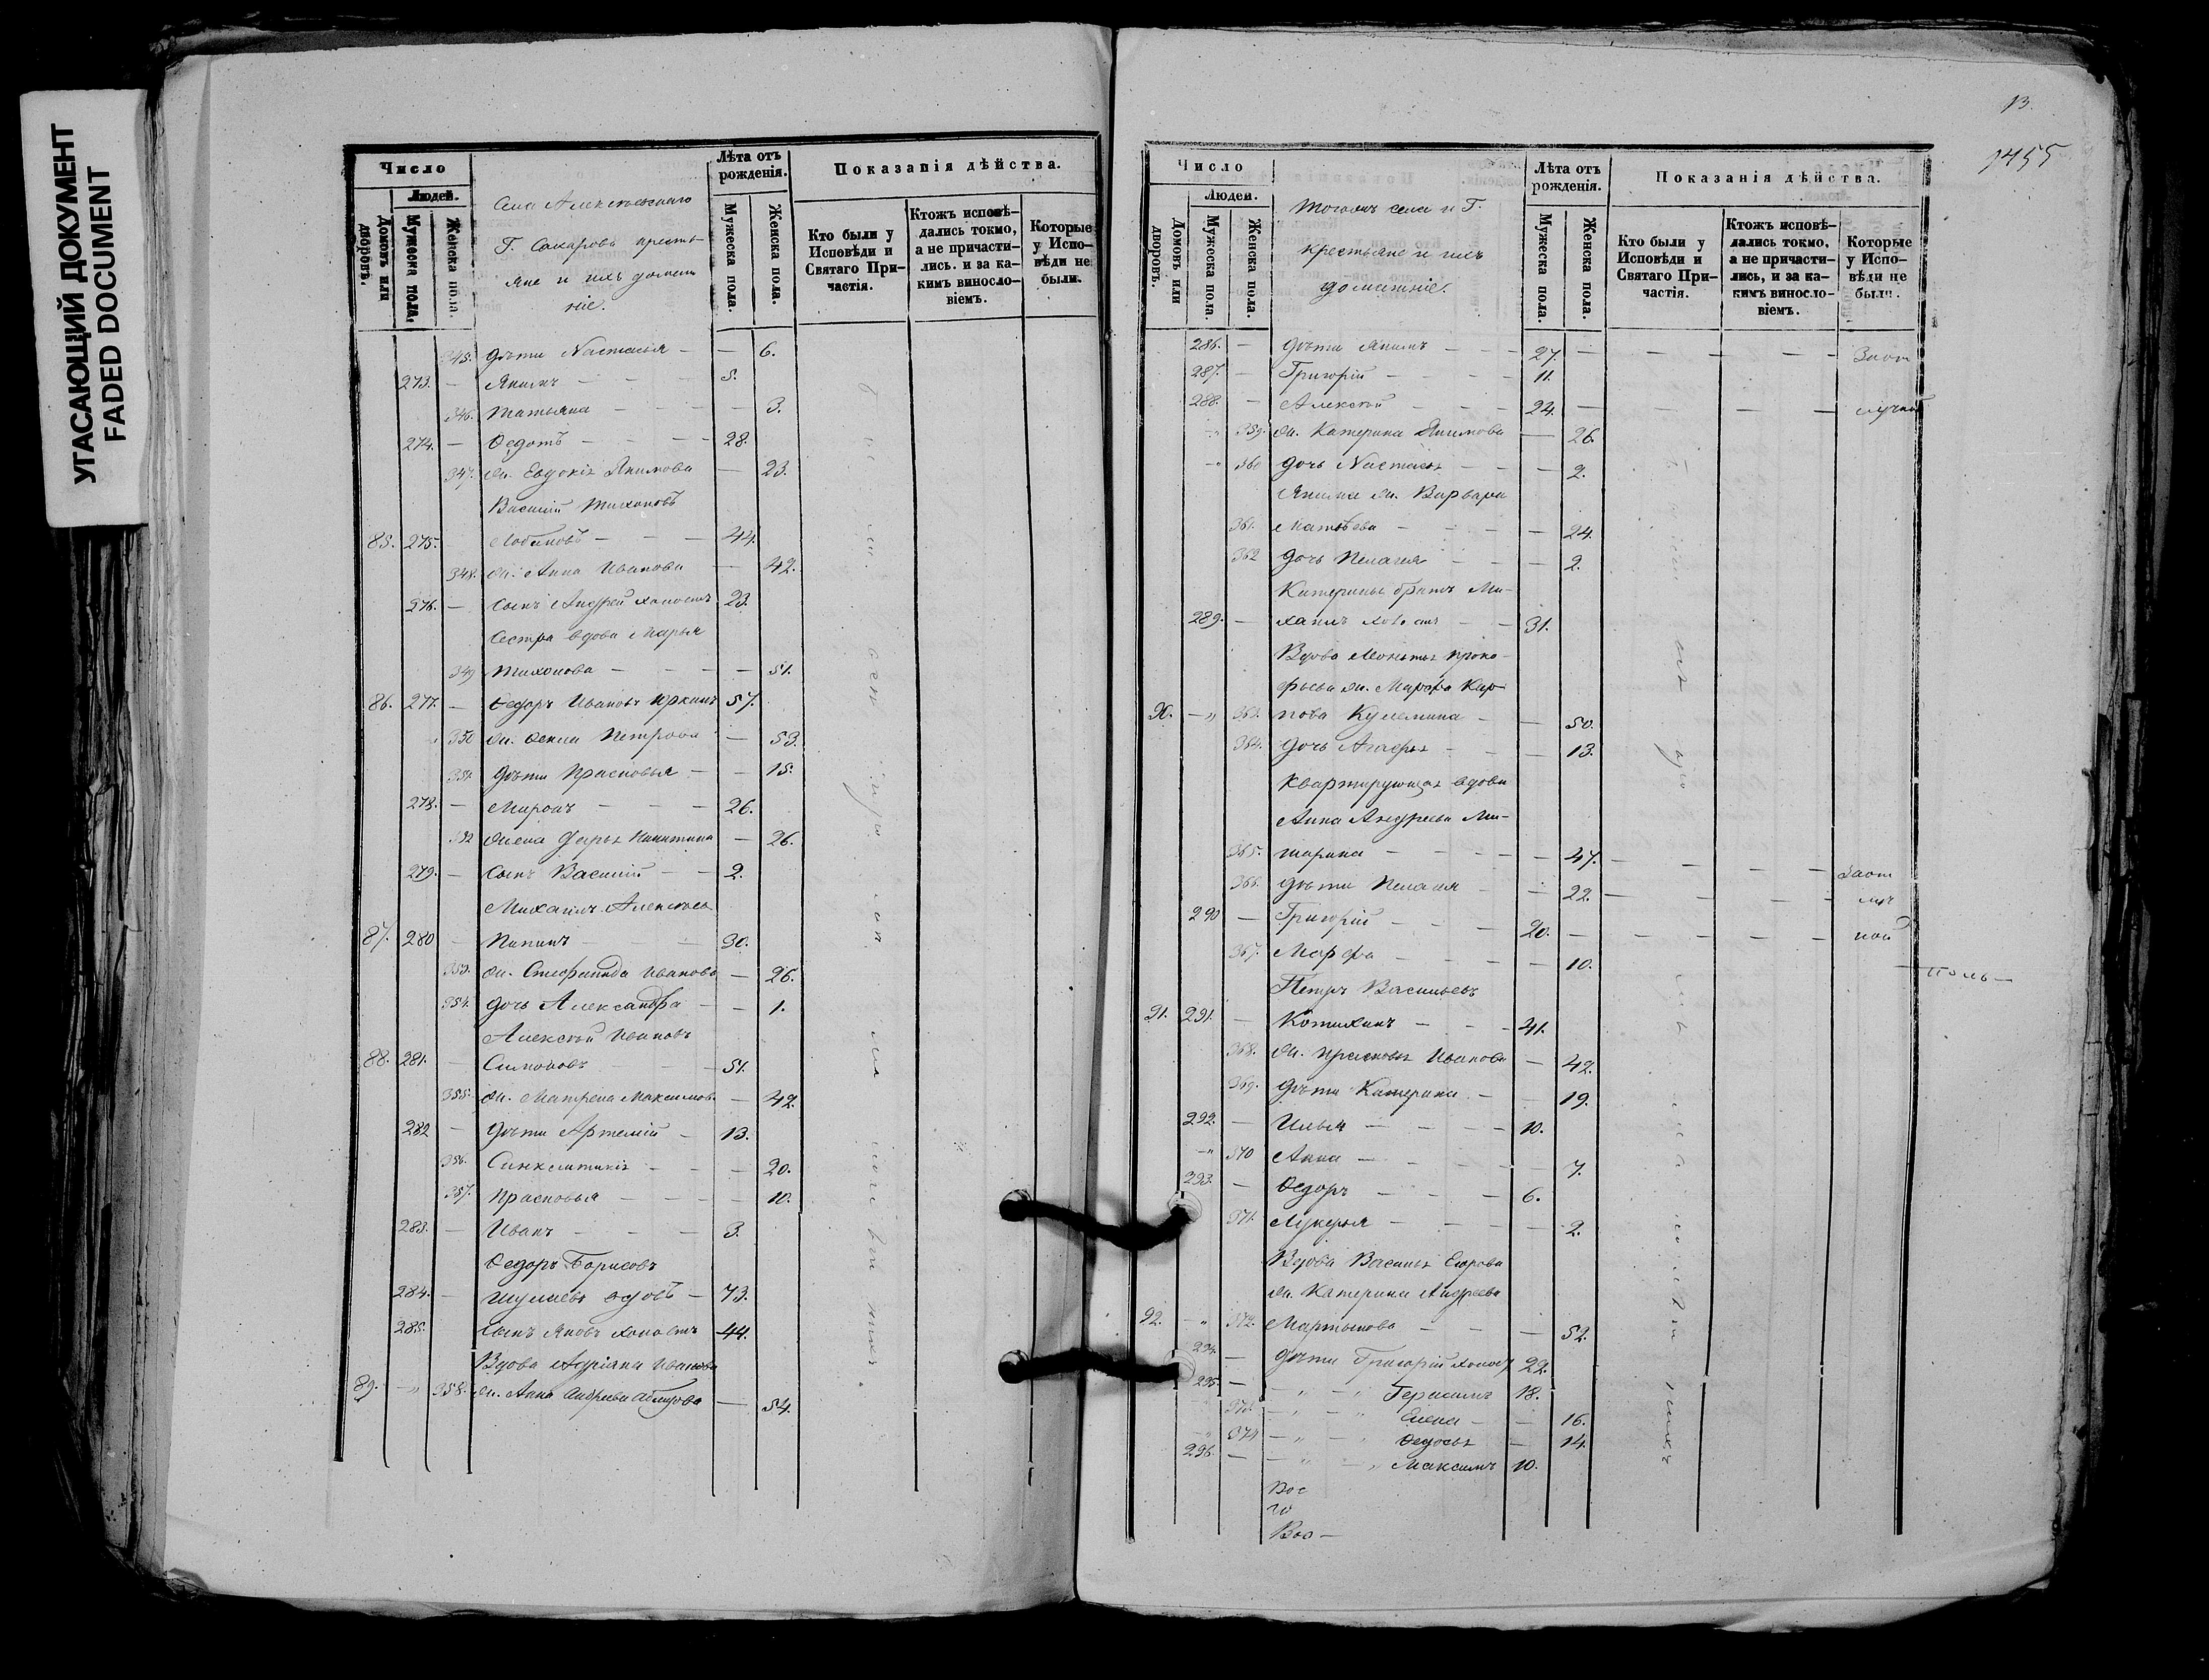 УГАСАЮЩИЙ ДОКУМЕНТ
FADED DOCUMENT
Число
Людей.
Домовъ или дворовъ.
Мужеска пола.
Женска пола.
Села Алексѣевскаго
Г. Сахарова кресть-
яне и ихъ домаш-
ніе.
Лѣта отъ рожденія.
Мужеска пола.
Женска пола.
Показанія дѣйства.
Кто были у Исповѣди и Святаго При-частія.
Ктожъ исповѣ-дались токмо, а не причасти-лись. и за ка-кимъ винослo-віемъ.
Которые у Испо-вѣди не были.
345. дѣти Настасья — — 6.
273. — Якимъ — — — 5.
346. Татьяна — — — — 3.
274. — Ѳедотъ — — — — 28.
347. ж. Евдокія Якимова — 23.
Василій Тихоновъ
85. 275. — Лобановъ — — — 44.
348. ж. Анна Иванова — 42.
276. — Сынъ Андрей холостъ 23.
Сестра вдова Марья
349 Тихонова — — — — 51.
86. 277. — Ѳедоръ Ивановъ Юркинъ 57.
350 ж. Ѳекла Петрова — 53.
351. дѣти Прасковья — — 15.
278. — Миронъ — — — 26.
352 жена Дарья Никитина — 26.
279. — Сынъ Василій — — 2.
Михаилъ Алексѣевъ
87. 280 — — — 30.
353. ж. Степанида Иванова — 26.
354. дочь Александра — — 1.
Алексѣй Ивановъ
88. 281. — Симоновъ — — 51.
355. ж. Матрена Максимов. — 42.
282 — дѣти Артемій — 13.
356. Синклитикія — — — 20.
357. Прасковья — — — — 10.
283. — Иванъ — — — 3.
Ѳедоръ Борисовъ
284. — вдовъ — 73.
285. сынъ Яковъ холостъ 44.
Вдова Адріана Иванова
89. — „ 358. ж. Анна Андреева — 54.
13.
1455
Число
Людей.
Домовъ или дворовъ.
Мужеска пола.
Женска пола.
Тогожъ села и Г.
крестьяне и ихъ
домашніе.
Лѣта отъ рожденія.
Мужеска пола.
Женска пола.
Показанія дѣйства.
Кто были у Исповѣди и Святаго При-частія.
Ктожъ исповѣ-дались токмо, а не причасти-лись, и за ка-кимъ винослo-віемъ.
Которые у Испо-вѣди не были.
286. — дѣти Якимъ — — — 27. — — — — — Заот
287. — Григорій — — — — 11.
288. — Алексѣй — — — 24. — — — — лучкой
— „ 359. ж. Катерина Якимова — 26.
— „ 360 дочь Настасья — — — 2.
Якима ж. Варвара
361. Матвѣева — — — — 24.
362 дочь Пелагея — — — 2.
Катерины братъ Ми-
289. — хаилъ холостъ — — 31.
Вдова Моисея Проко-
фьева ж. Марфа Кар-
90. — „ 363. пова Кулемина — — 50.
364. дочь Агафья — — — 13.
Квартирующая вдова
Анна Андреева Ми-
365. шарина — — — — — 47. — — — — Заот
366. дѣти Пелагея — — 22. — — — — луч
290 — Григорій — — — 20. — — — — — кой
367. Марфа — — — — — 10.
Петръ Васильевъ
91. 291. — Котихинъ — — — 41.
368. ж. Прасковья Иванова — 42.
369. дѣти Катерина — — 19.
292. — Илья — — — — 10.
— „ 370 Анна — — — — — 7.
293. — Ѳедоръ — — — — 6.
371. Лукерья — — — — — 2.
Вдова Василья Егорова
ж. Катерина Андреева
92. — „ 372. Мартынова — — — 52.
294. — дѣти Григорій холост 22.
295. — „ — „ Герасимъ 18.
373. — „ — „ Елена — — 16.
— „ 374 — „ — „ Ѳедосья — 14.
296. — — „ — „ Максимъ 10.